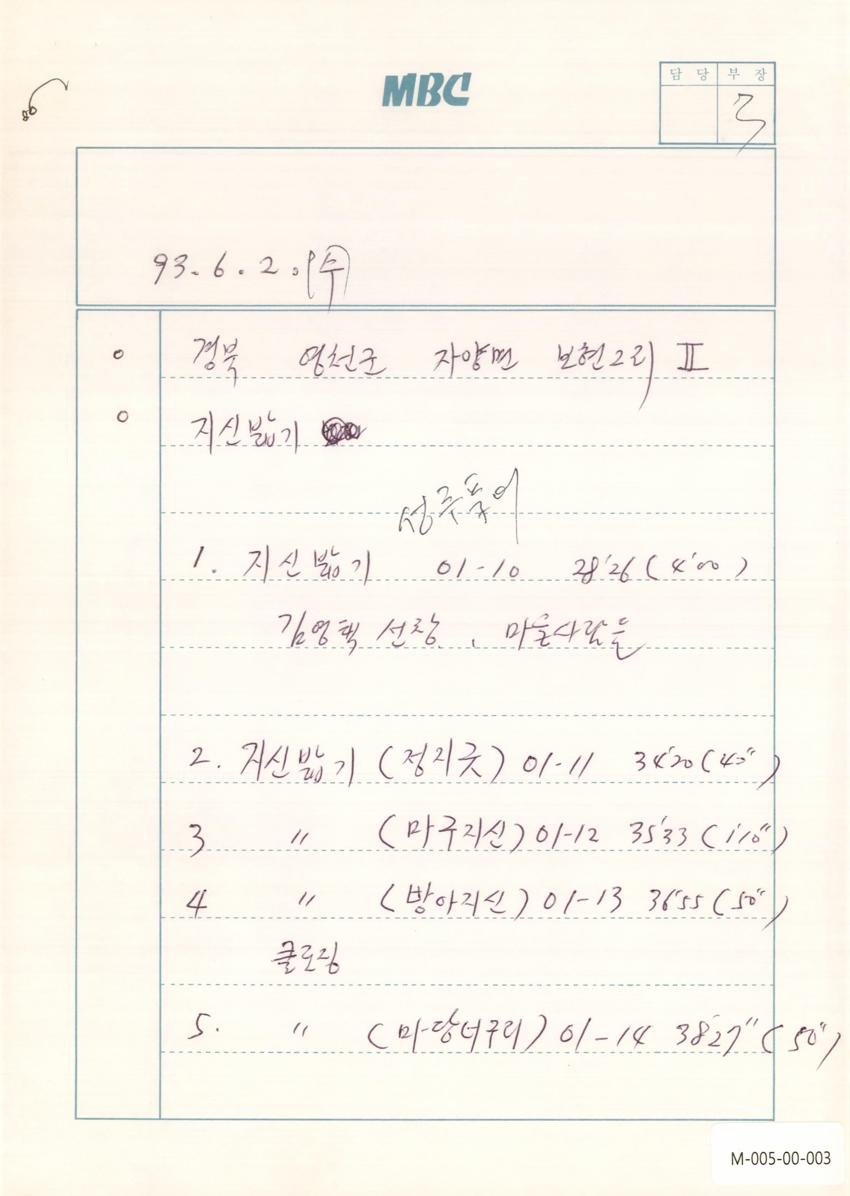 MBC
담 당 부 장
93. 6. 2. (수)
경북 영천군 자양면 보현2리 II
지신밟기
성주풀이
1. 지신밟기 01-10 28'26 (4'00)
김영택 선창, 마을사람들
2. 지신밟기 (정지굿) 01-11 34'20 (40")
3 〃 (마구지신) 01-12 35'33 (1'10")
4 〃 (방아지신) 01-13 36'55 (50")
클로징
5. 〃 (마당너구리) 01-14 38'27" (50")
M-005-00-003